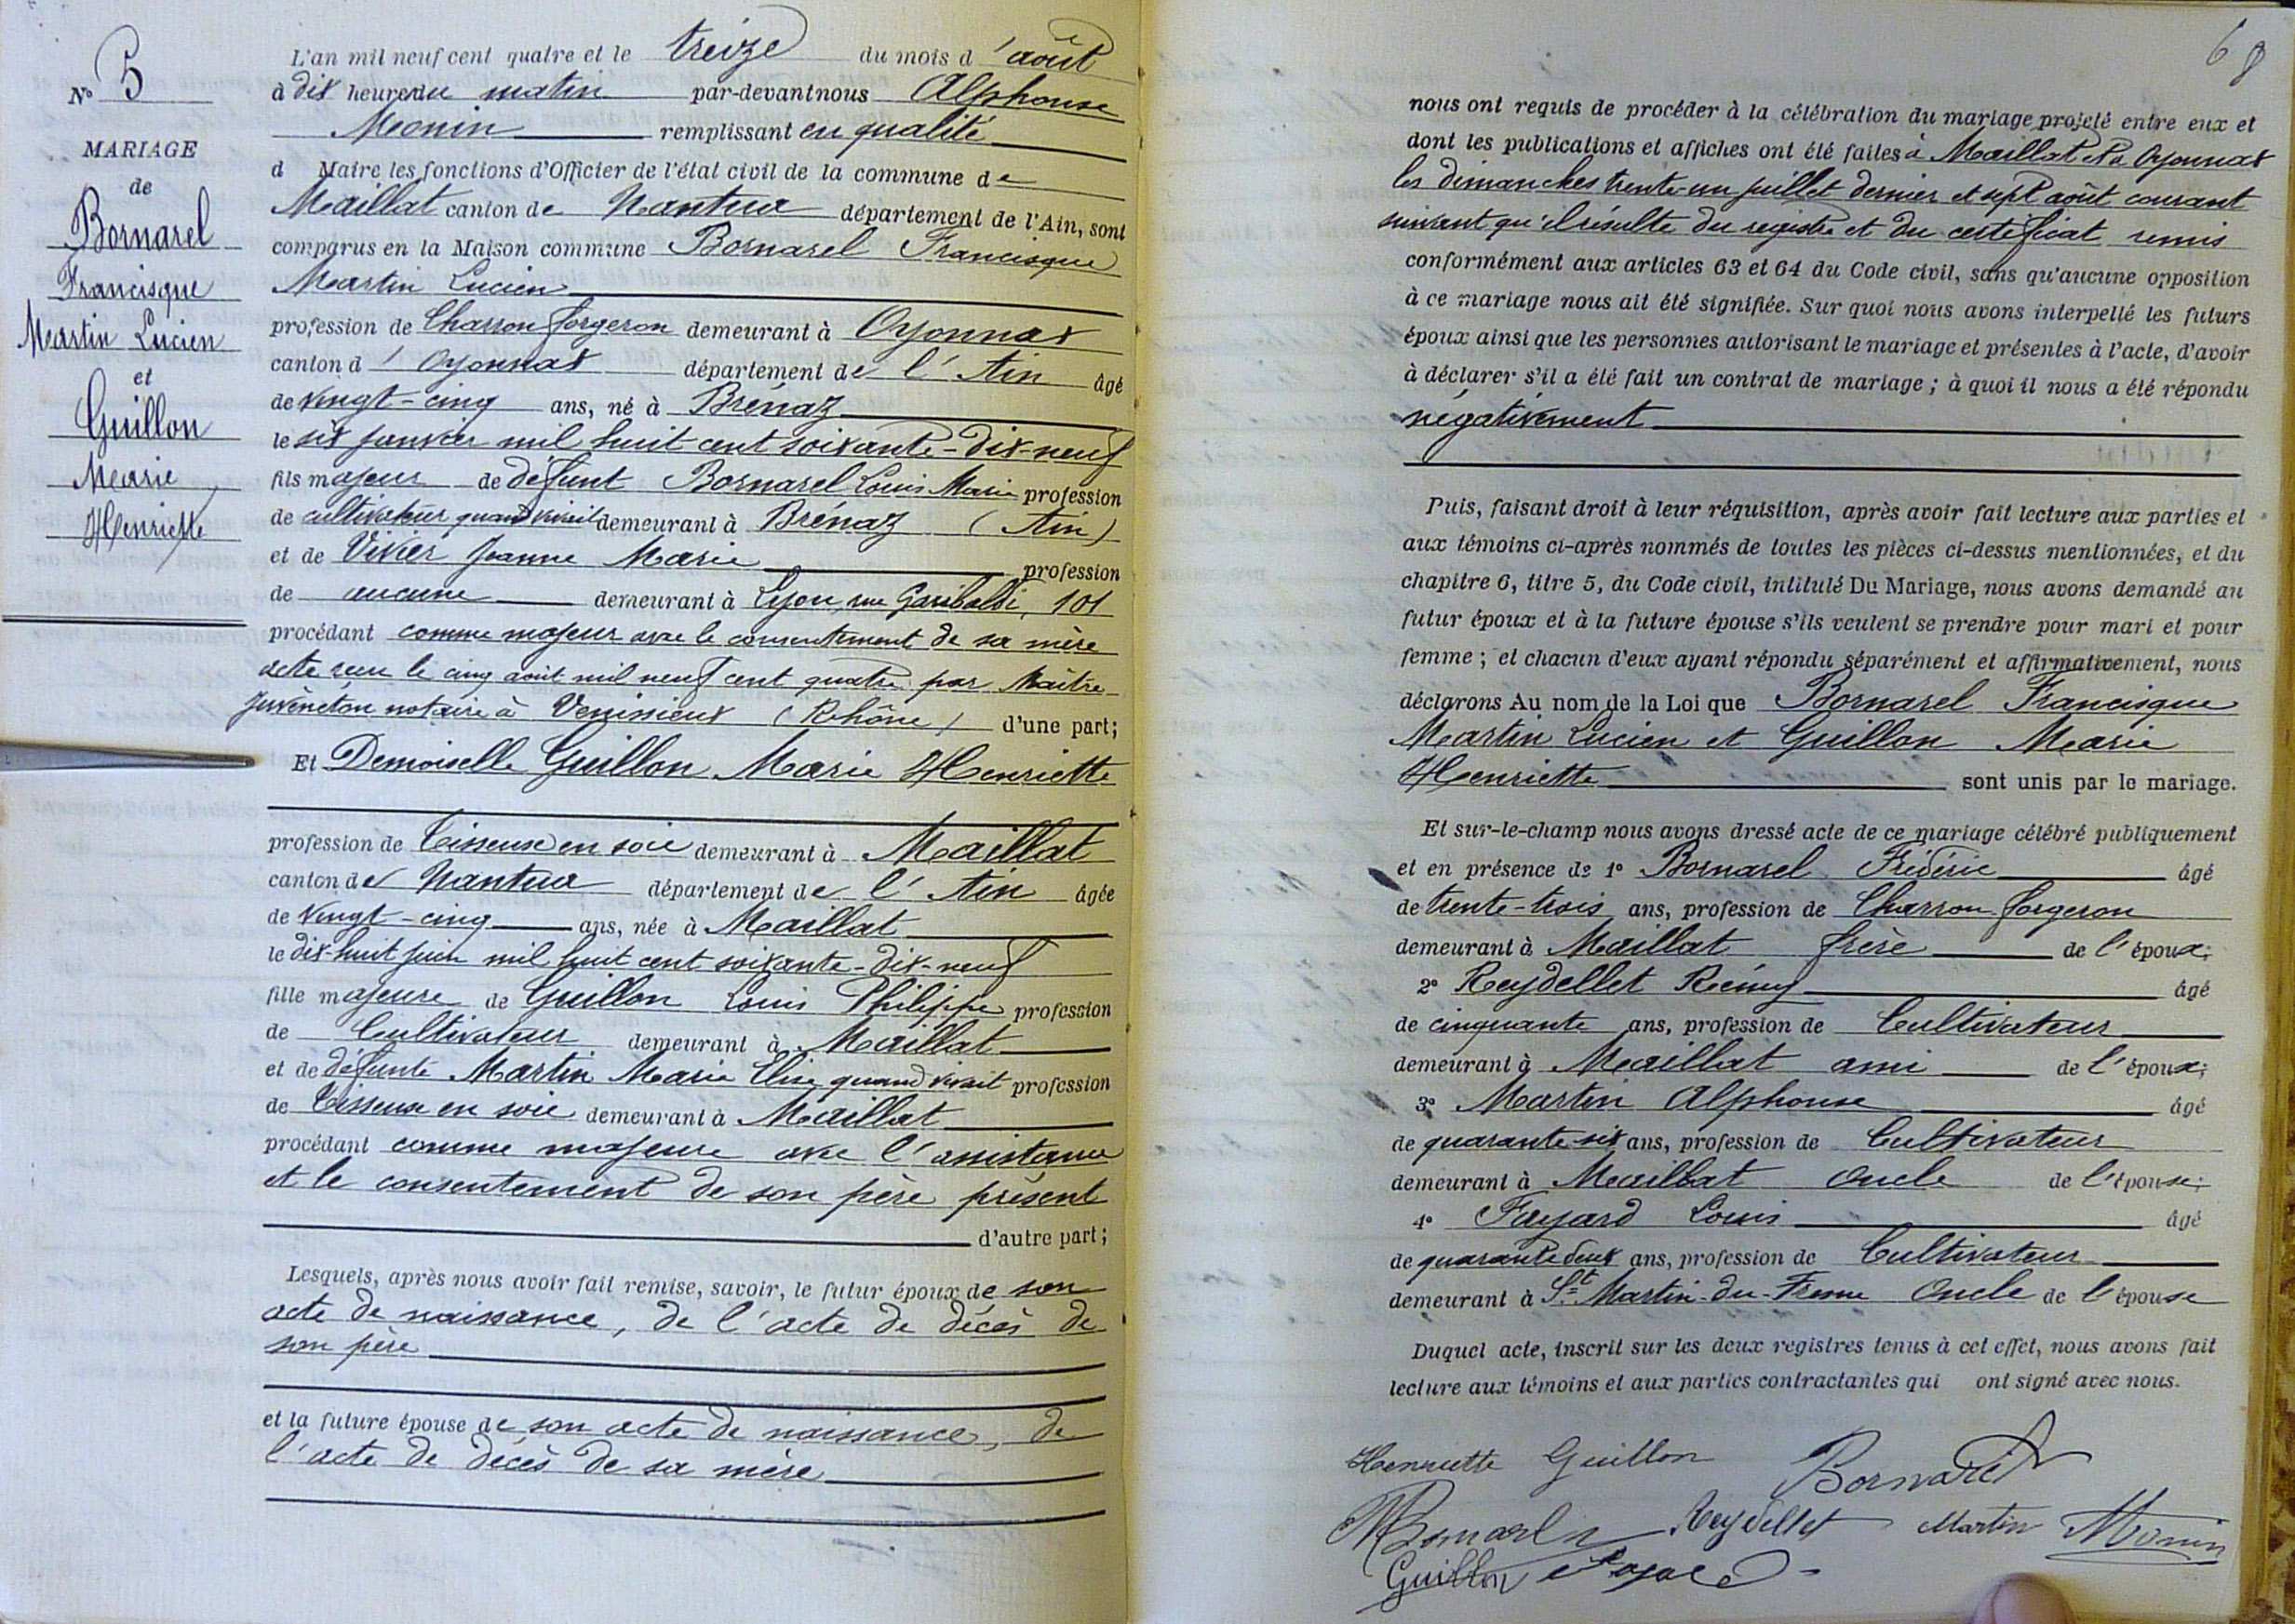 N° 5
MARIAGE
de
Bornarel
Francisque
Martin Lucien
et
Guillon
Marie
Henriette
L'an mil neuf cent quatre et le treize du mois d'août
à dix heures du matin par-devant nous Alphonse
Monin remplissant en qualité
d Maire les fonctions d'Officier de l'état civil de la commune de
Maillat canton de Nantua département de l'Ain, sont
comparus en la Maison commune Bornarel Francisque
Martin Lucien
profession de Charron forgeron demeurant à Oyonnax
canton d'Oyonnax département de l'Ain âgé
de vingt-cinq ans, né à Brénaz
le six janvier mil huit cent soixante-dix-neuf
fils majeur de défunt Bornarel Louis Marie profession
de cultivateur quand vivait demeurant à Brénaz (Ain)
et de Vivier Jeanne Marie profession
de aucune demeurant à Lyon, rue Garibaldi, 101
procédant comme majeur avec le consentement de sa mère
acte reçu le cinq août mil neuf cent quatre par Maître
Juvéneton notaire à Venissieux (Rhône) d'une part;
Et Demoiselle Guillon Marie Henriette
profession de Tisseuse en soie demeurant à Maillat
canton de Nantua département de l'Ain âgée
de vingt-cinq ans, née à Maillat
le dix-huit juin mil huit cent soixante-dix-neuf
fille majeure de Guillon Louis Philippe profession
de Cultivateur demeurant à Maillat
et de défunte Martin Marie Elise quand vivait profession
de Tisseuse en soie demeurant à Maillat
procédant comme majeure avec l'assistance
et le consentement de son père présent
d'autre part;
Lesquels, après nous avoir fait remise, savoir, le futur époux de son
acte de naissance, de l'acte de décès de
son père
et la future épouse de son acte de naissance, de
l'acte de décès de sa mère
68
nous ont requis de procéder à la célébration du mariage projeté entre eux et
dont les publications et affiches ont été faites à Maillat et à Oyonnax
les dimanches trente-un juillet dernier et sept août courant
suivant qu'il résulte du registre et du certificat remis
conformément aux articles 63 et 64 du Code civil, sans qu'aucune opposition
à ce mariage nous ait été signifiée. Sur quoi nous avons interpellé les futurs
époux ainsi que les personnes autorisant le mariage et présentes à l'acte, d'avoir
à déclarer s'il a été fait un contrat de mariage; à quoi il nous a été répondu
négativement
Puis, faisant droit à leur réquisition, après avoir fait lecture aux parties et
aux témoins ci-après nommés de toutes les pièces ci-dessus mentionnées, et du
chapitre 6, titre 5, du Code civil, intitulé Du Mariage, nous avons demandé au
futur époux et à la future épouse s'ils veulent se prendre pour mari et pour
femme; et chacun d'eux ayant répondu séparément et affirmativement, nous
déclarons Au nom de la Loi que Bornarel Francisque
Martin Lucien et Guillon Marie
Henriette sont unis par le mariage.
Et sur-le-champ nous avons dressé acte de ce mariage célébré publiquement
et en présence de 1° Bornarel Frédéric âgé
de trente-trois ans, profession de Charron forgeron
demeurant à Maillat frère de l'époux;
2° Reydellet Rémy âgé
de cinquante ans, profession de Cultivateur
demeurant à Maillat ami de l'époux;
3° Martin Alphonse âgé
de quarante-six ans, profession de Cultivateur
demeurant à Maillat oncle de l'épouse;
4° Fayard Louis âgé
de quarante deux ans, profession de Cultivateur
demeurant à St Martin-du-Fresne Oncle de l'épouse
Duquel acte, inscrit sur les deux registres tenus à cet effet, nous avons fait
lecture aux témoins et aux parties contractantes qui ont signé avec nous.
Henriette Guillon Bornarel
Bornarel Reydellet Martin Monin
Guillon Fayard